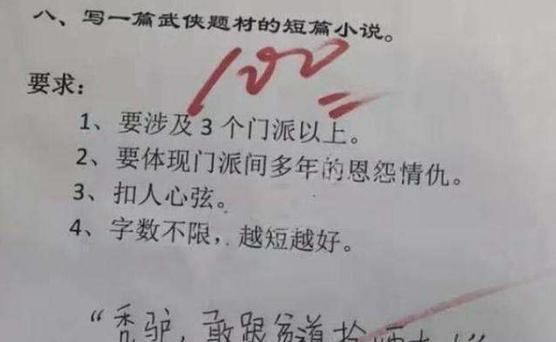 八、写一篇武侠题材的短篇小说。
100
要求:
1、要涉及3个门派以上。
2、要体现门派间多年的恩怨情仇。
3、扣人心弦。
4、字数不限,越短越好。
“秃驴,敢跟贫道抢师太